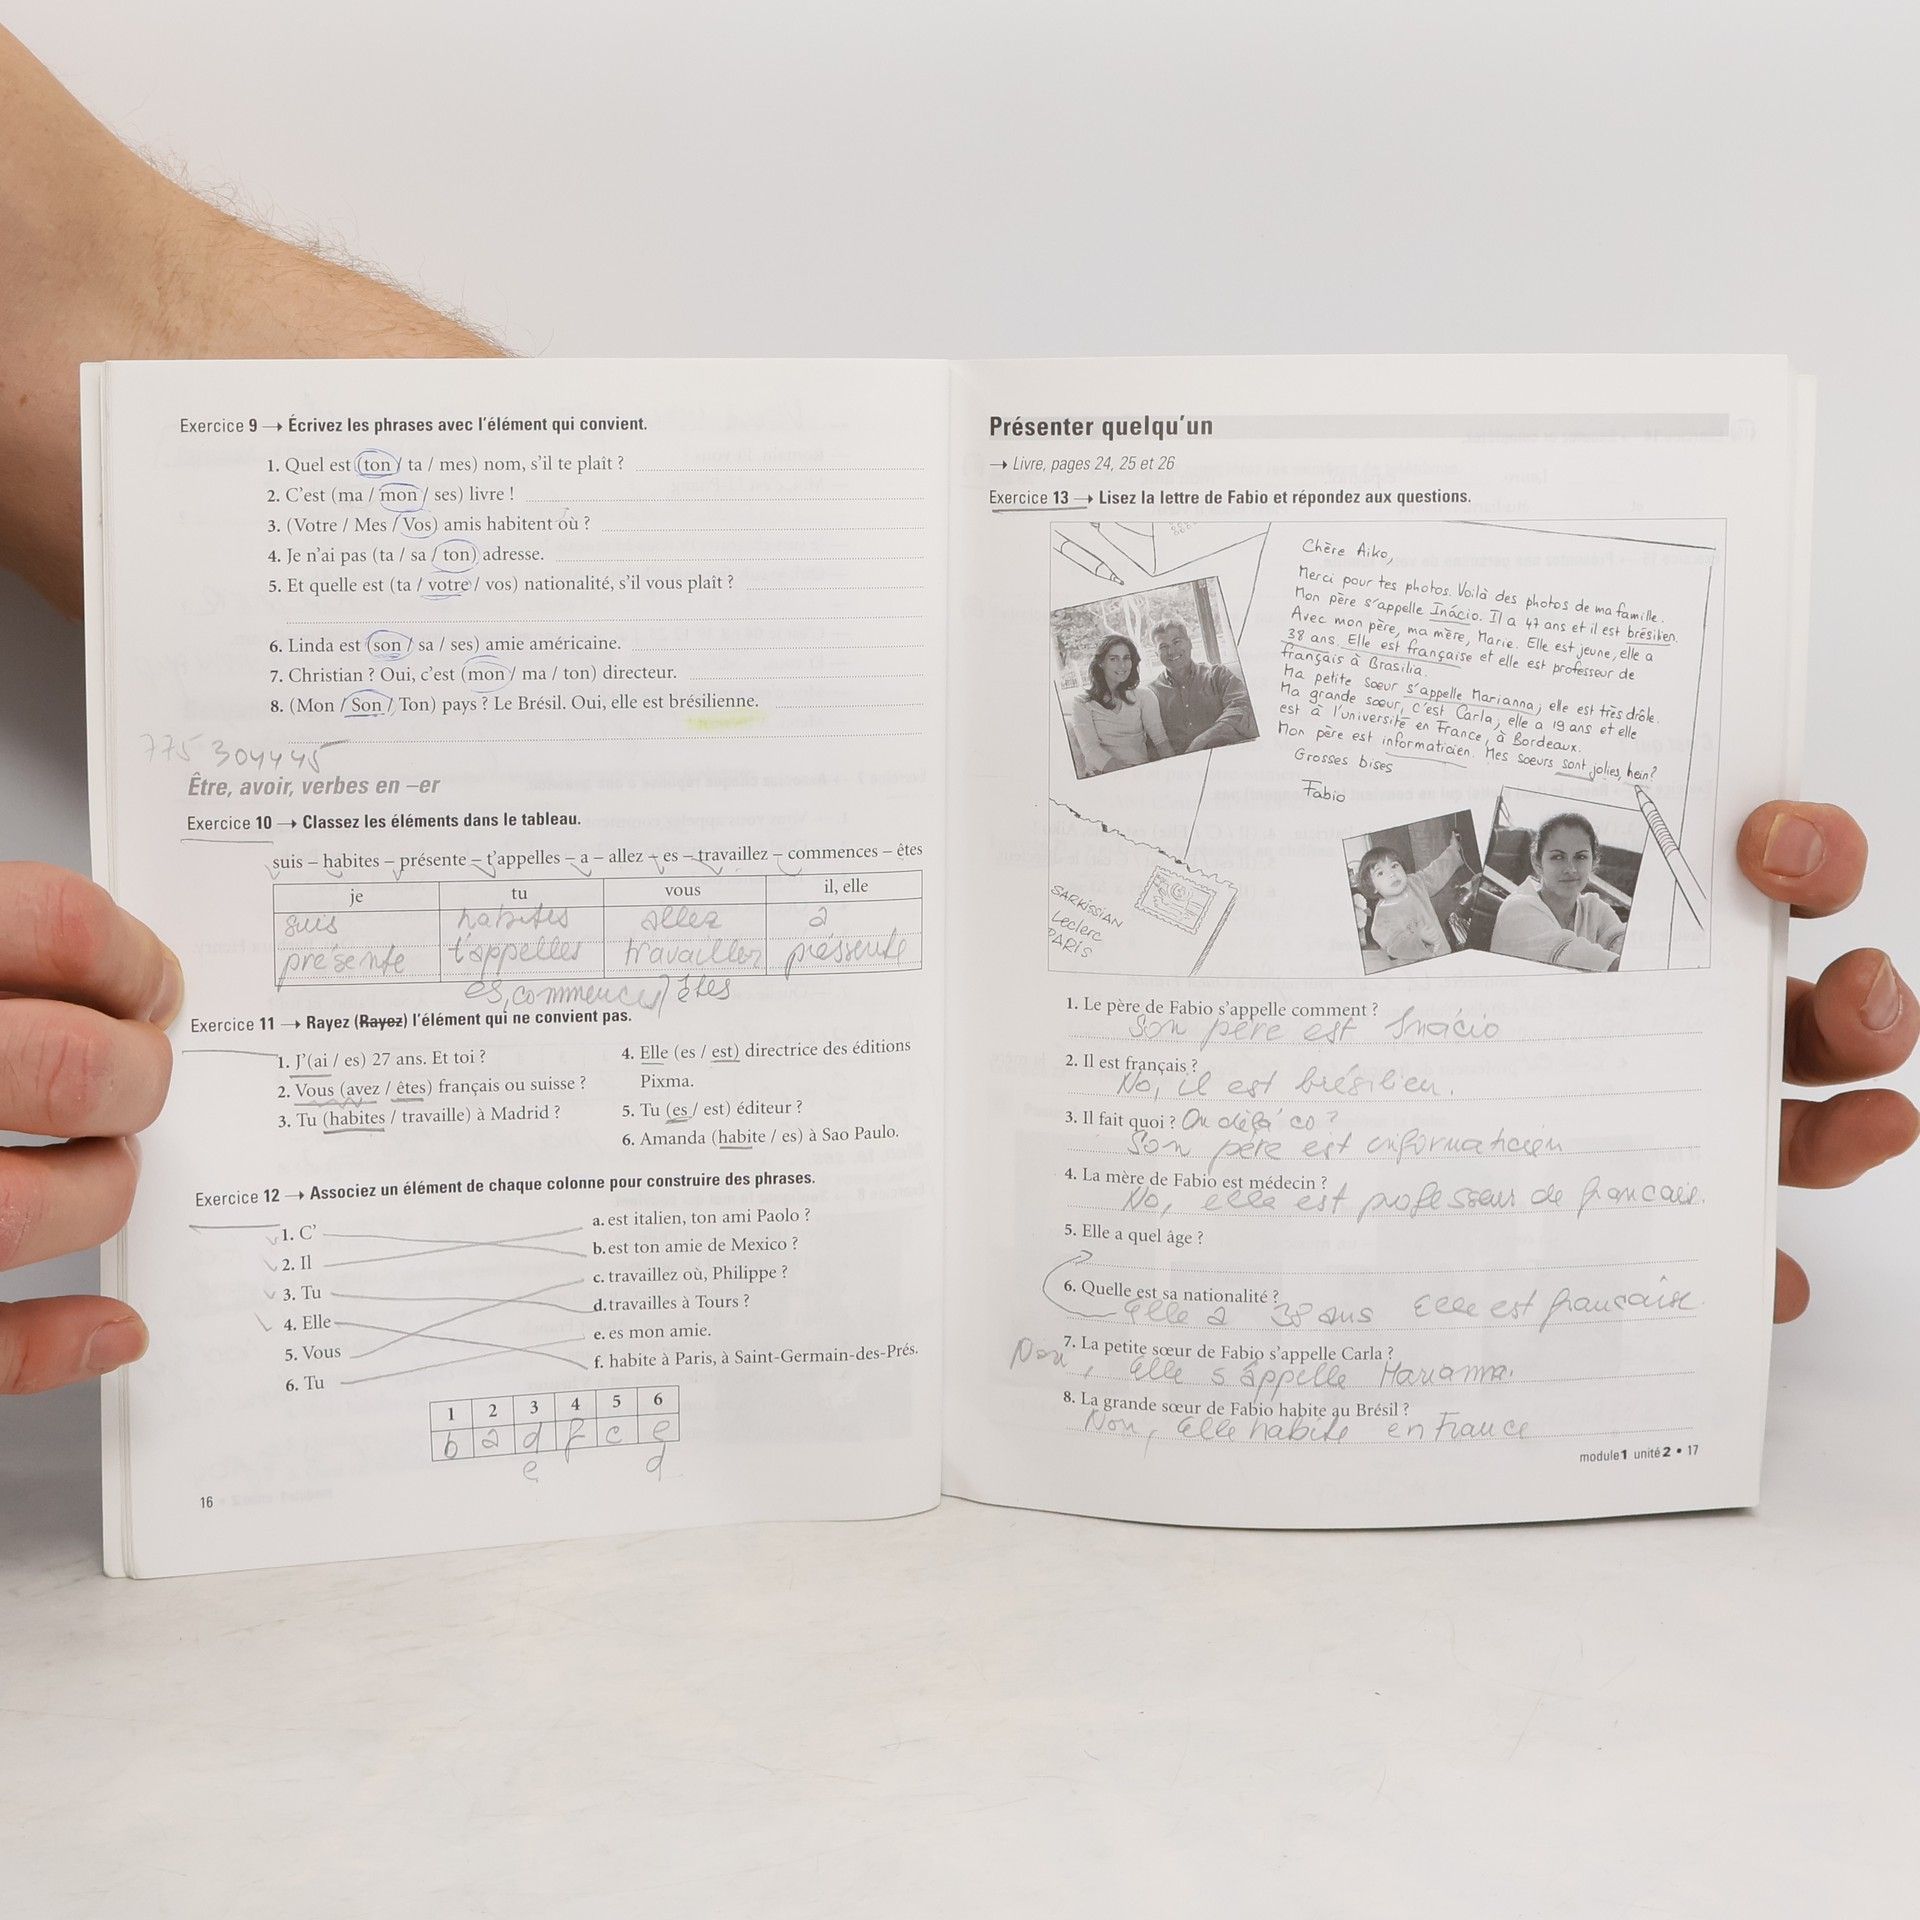 Exercice 9 → Écrivez les phrases avec l'élément qui convient.
1. Quel est (ton / ta / mes) nom, s'il te plaît ?
2. C'est (ma / mon / ses) livre !
3. (Votre / Mes / Vos) amis habitent où ?
4. Je n'ai pas (ta / sa / ton) adresse.
5. Et quelle est (ta / votre / vos) nationalité, s'il vous plaît ?
6. Linda est (son / sa / ses) amie américaine.
7. Christian ? Oui, c'est (mon / ma / ton) directeur.
8. (Mon / Son / Ton) pays ? Le Brésil. Oui, elle est brésilienne.
775 304445
Être, avoir, verbes en –er
Exercice 10 → Classez les éléments dans le tableau.
suis – habites – présente – t'appelles – a – allez – es – travaillez – commences – êtes
je tu vous il, elle
suis habites allez a
présente t'appelles travaillez préssente
es, commences êtes
Exercice 11 → Rayez (Rayez) l'élément qui ne convient pas.
1. J'(ai / es) 27 ans. Et toi ?
2. Vous (avez / êtes) français ou suisse ?
3. Tu (habites / travaille) à Madrid ?
4. Elle (es / est) directrice des éditions
Pixma.
5. Tu (es / est) éditeur ?
6. Amanda (habite / es) à Sao Paulo.
Exercice 12 → Associez un élément de chaque colonne pour construire des phrases.
1. C'
2. Il
3. Tu
4. Elle
5. Vous
6. Tu
a. est italien, ton ami Paolo ?
b. est ton amie de Mexico ?
c. travaillez où, Philippe ?
d. travailles à Tours ?
e. es mon amie.
f. habite à Paris, à Saint-Germain-des-Prés.
1 2 3 4 5 6
b a d f c e
e d
16
Présenter quelqu'un
→ Livre, pages 24, 25 et 26
Exercice 13 → Lisez la lettre de Fabio et répondez aux questions.
Chère Aiko,
Merci pour tes photos. Voilà des photos de ma famille.
Mon père s'appelle Inácio. Il a 47 ans et il est brésilien.
Avec mon père, ma mère, Marie. Elle est jeune, elle a
38 ans. Elle est française et elle est professeur de
français à Brasilia.
Ma petite sœur s'appelle Marianna, elle est très drôle.
Ma grande sœur, c'est Carla, elle a 19 ans et elle
est à l'université en France, à Bordeaux.
Mon père est informaticien. Mes sœurs sont jolies, hein?
Grosses bises
Fabio
SARKISSIAN
Leclerc
PARIS
1. Le père de Fabio s'appelle comment ?
Son père est Inácio
2. Il est français ?
No, il est brésilien.
3. Il fait quoi ? On dělá co ?
Son père est informaticien
4. La mère de Fabio est médecin ?
No, elle est professeur de francais.
5. Elle a quel âge ?
6. Quelle est sa nationalité ?
Elle a 38 ans Elle est française.
7. La petite sœur de Fabio s'appelle Carla ?
Non, elle s'appelle Marianna.
8. La grande sœur de Fabio habite au Brésil ?
Non, elle habite en France
module 1 unité 2 • 17